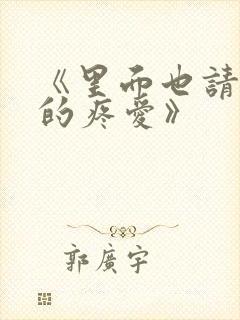 《里面也請
的疼愛》
郭廣宇